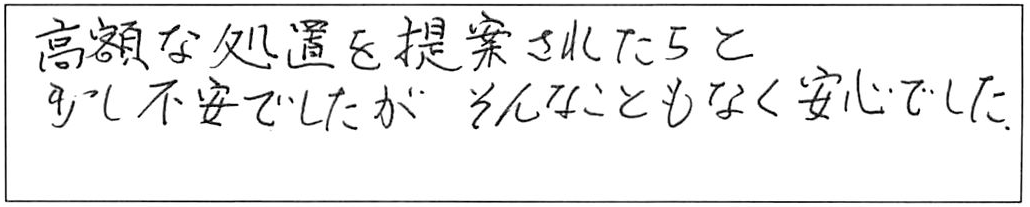 高額な処置を提案されたらと
少し不安でしたが そんなこともなく安心でした.